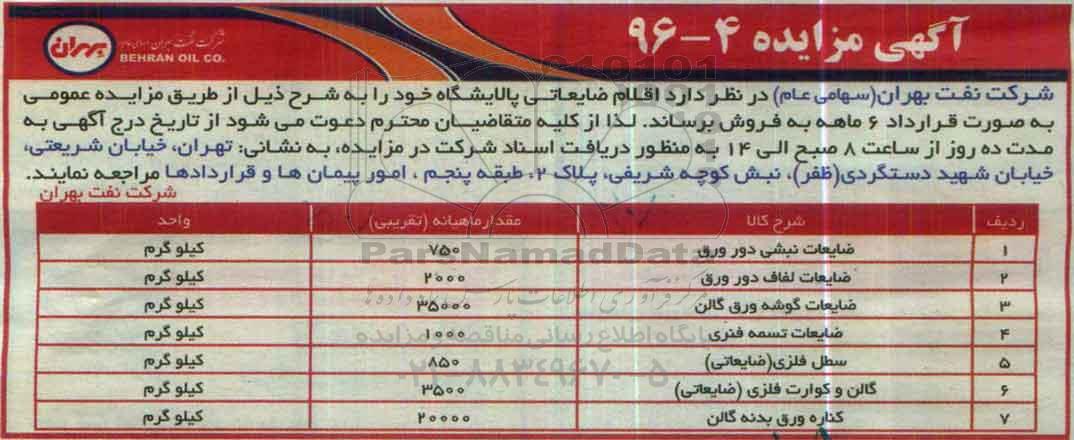 آگهی مزایده ۴-۹۶
شرکت نفت بهران (سهامی عام)
BEHRAN OIL CO.
بهران
شرکت نفت بهران(سهامی عام) در نظر دارد اقلام ضایعاتی پالایشگاه خود را به شرح ذیل از طریق مزایده عمومی
به صورت قرارداد ۶ ماهه به فروش برساند. لذا از کلیه متقاضیان محترم دعوت می شود از تاریخ درج آگهی به
مدت ده روز از ساعت ۸ صبح الی ۱۴ به منظور دریافت اسناد شرکت در مزایده، به نشانی: تهران، خیابان شریعتی،
خیابان شهید دستگردی(ظفر)، نبش کوچه شریفی، پلاک ۲، طبقه پنجم ، امور پیمان ها و قراردادها مراجعه نمایند.
شرکت نفت بهران
ردیف شرح کالا مقدارماهیانه (تقریبی) واحد
۱ ضایعات نبشی دور ورق ۷۵۰ کیلو گرم
۲ ضایعات لفاف دور ورق ۲۰۰۰ کیلو گرم
۳ ضایعات گوشه ورق گالن ۳۵۰۰۰ کیلو گرم
۴ ضایعات تسمه فنری ۱۰۰۰ کیلو گرم
۵ سطل فلزی(ضایعاتی) ۸۵۰ کیلو گرم
۶ گالن و کوارت فلزی (ضایعاتی) ۳۵۰۰ کیلو گرم
۷ کناره ورق بدنه گالن ۲۰۰۰۰ کیلو گرم
ParsNamadData
مرکز فرآوری اطلاعات پارس نماد داده ها
پایگاه اطلاع رسانی مناقصه و مزایده
۰۲۱-۸۸۳۴۹۶۷۰-۵